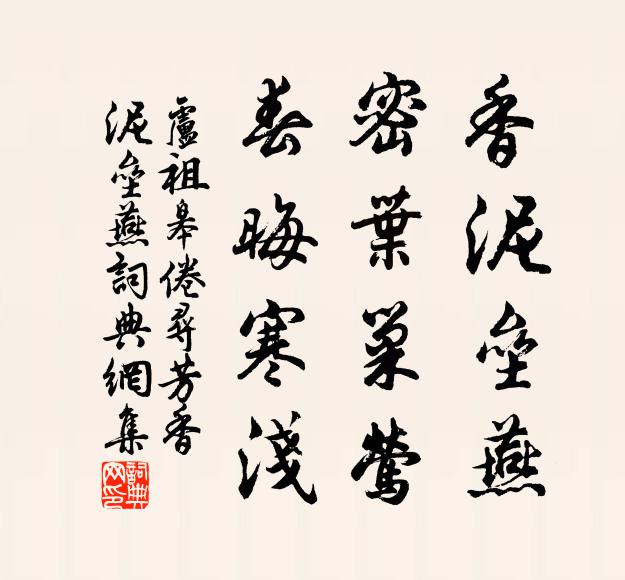 香泥壘燕
密葉巢鶯
春晦寒淺
盧祖皋倦尋芳香
泥壘燕詞典網集
詞典网印